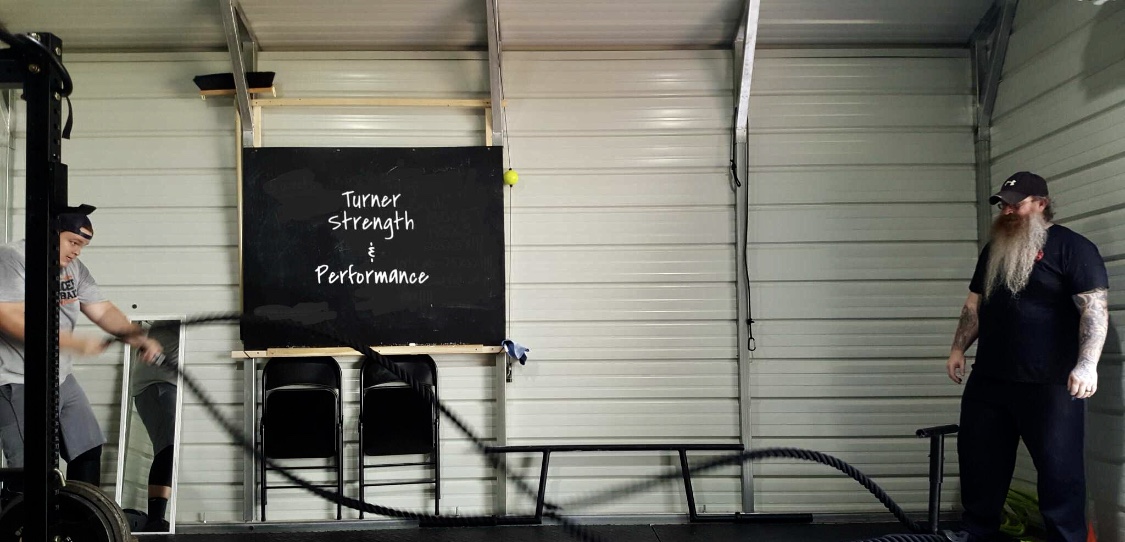 Turner
Strength
&
Performance